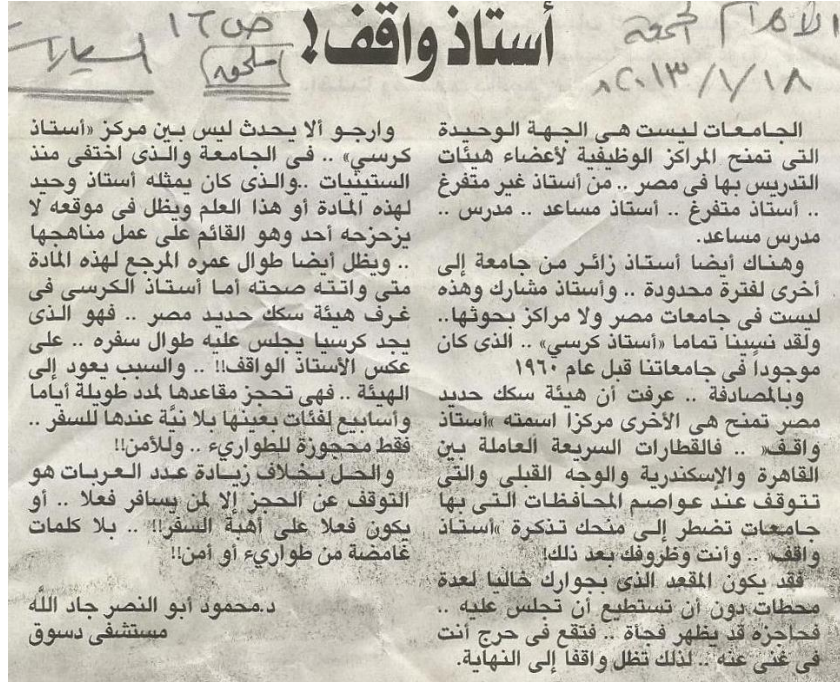 الأهرام الجمعة
١٨/١/٢٠١٣م
ص ١٦
ملحق
السيارات
أستاذ واقف!
الجامعات ليست هى الجهة الوحيدة
التى تمنح المراكز الوظيفية لأعضاء هيئات
التدريس بها فى مصر .. من أستاذ غير متفرغ
.. أستاذ متفرغ .. أستاذ مساعد .. مدرس ..
مدرس مساعد.
وهناك أيضا أستاذ زائر من جامعة إلى
أخرى لفترة محدودة .. وأستاذ مشارك وهذه
ليست فى جامعات مصر ولا مراكز بحوثها..
ولقد نسينا تماما «أستاذ كرسي» .. الذى كان
موجوداً فى جامعاتنا قبل عام ١٩٦٠
وبالمصادفة .. عرفت أن هيئة سكك حديد
مصر تمنح هى الأخرى مركزا اسمته »أستاذ
واقف« .. فالقطارات السريعة العاملة بين
القاهرة والإسكندرية والوجه القبلى والتى
تتوقف عند عواصم المحافظات التى بها
جامعات تضطر إلى منحك تذكرة »أستاذ
واقف« .. وأنت وظروفك بعد ذلك!
فقد يكون المقعد الذى بجوارك خاليا لعدة
محطات دون أن تستطيع أن تجلس عليه ..
فحاجزه قد يظهر فجأة .. فتقع فى حرج أنت
فى غنى عنه .. لذلك تظل واقفا إلى النهاية.
وارجو ألا يحدث ليس بين مركز «أستاذ
كرسي» .. فى الجامعة والذى اختفى منذ
الستينيات ..والذى كان يمثله أستاذ وحيد
لهذه المادة أو هذا العلم ويظل فى موقعه لا
يزحزحه أحد وهو القائم على عمل مناهجها
.. ويظل أيضا طوال عمره المرجع لهذه المادة
متى واتته صحته أما أستاذ الكرسى فى
غرف هيئة سكك حديد مصر .. فهو الذى
يجد كرسيا يجلس عليه طوال سفره .. على
عكس الأستاذ الواقف!! .. والسبب يعود إلى
الهيئة .. فهى تحجز مقاعدها لمدد طويلة أياما
وأسابيع لفئات بعينها بلا نيَّة عندها للسفر ..
فقط محجوزة للطواريء .. وللأمن!!
والحل بخلاف زيادة عدد العربات هو
التوقف عن الحجز إلا لمن يسافر فعلا .. أو
يكون فعلا على أهبة السفر!! .. بلا كلمات
غامضة من طواريء أو أمن!!
د.محمود أبو النصر جاد الله
مستشفى دسوق